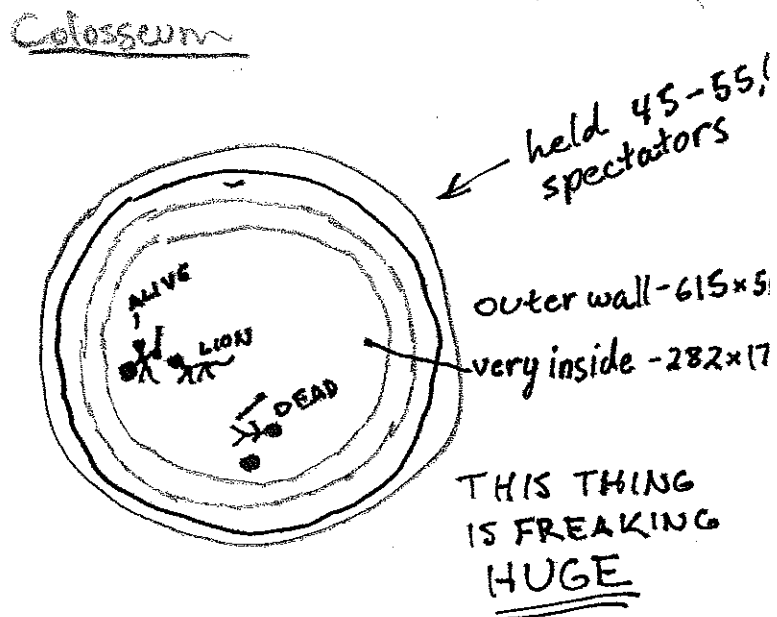 Colosseum
held 45-55,
spectators
ALIVE
LION
DEAD
outer wall-615x5
very inside -282x17
THIS THING
IS FREAKING
HUGE